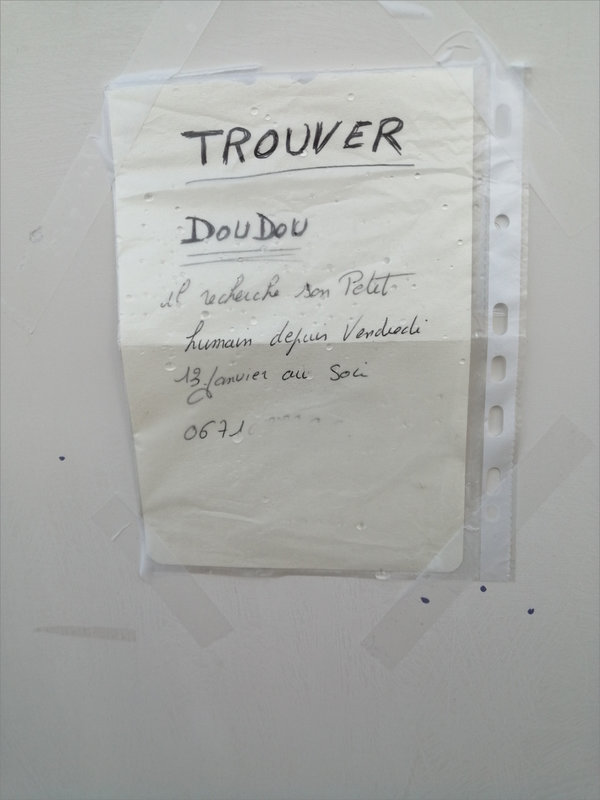 TROUVER
DOUDOU
il recherche son Petit
humain depuis Vendredi
13 Janvier au Soir
0671